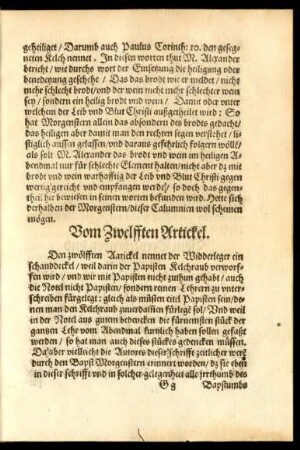 geheiliget / Darumb auch Paulus Corinth: 10. den geseg-
neten Kelch nennet. In diesen worten thut M. Alexander
bericht / wie durchs wort der Einsetzung die heiligung oder
benedeyung geschehe / Das das brodt wie er meldet / nicht
mehr schlecht brodt / und der wein nicht mehr schlechter wein
sey / sondern ein heilig brodt und wein / Damit oder unter
welchem der Leib und Blut Christi außgetheilet wird: So
hat Morgenstern allein das absondern des brodes gedacht /
das heiligen aber damit man den rechten segen verstehet / li-
stiglich aussen gelassen / und daraus gefehrlich folgern wöll /
als solt M. Alexander das brodt und wein im heiligen A-
bendmal nur für schlechte Element halten / nicht aber da mit
brodt und wein warhafftig der Leib und Blut Christi gegen
wertig gereicht und empfangen werde / so doch das gegen-
theil hie bewiesen in seinen worten befunden wird. Hette sich
derhalben der Morgenstern / dieser Calumnien wol schemen
mögen.
Vom Zwelfften Artickel.
Den zwölfften Aarickel nennet der Widderleger ein
schanddeckel / weil darin der Papisten Kelchraub verworf-
fen wird / und wir mit Papisten nicht zuthun gehabt / auch
die Notel nicht Papisten / sondern reinen Lehrern zu unter-
schreiben fürgelegt: gleich als müsten eitel Papisten sein / de-
nen man den Kelchraub zuuerdamen fürlege sol / Und weil
in der Notel aus gutem bedencken die fürnemsten stück der
gantzen Lehr vom Abendmal kürtzlich haben sollen gefast
werden / so hat man auch dieses stückes gedencken müssen.
Da aber vielleicht die Autores dieser schrifft zeitlicher were
durch den Bapst Morgenstern erinnert worden / dz sie eben
in dieser schrifft und in solcher gelegenheit alle jrrthumb des
Gg Bapstumbs